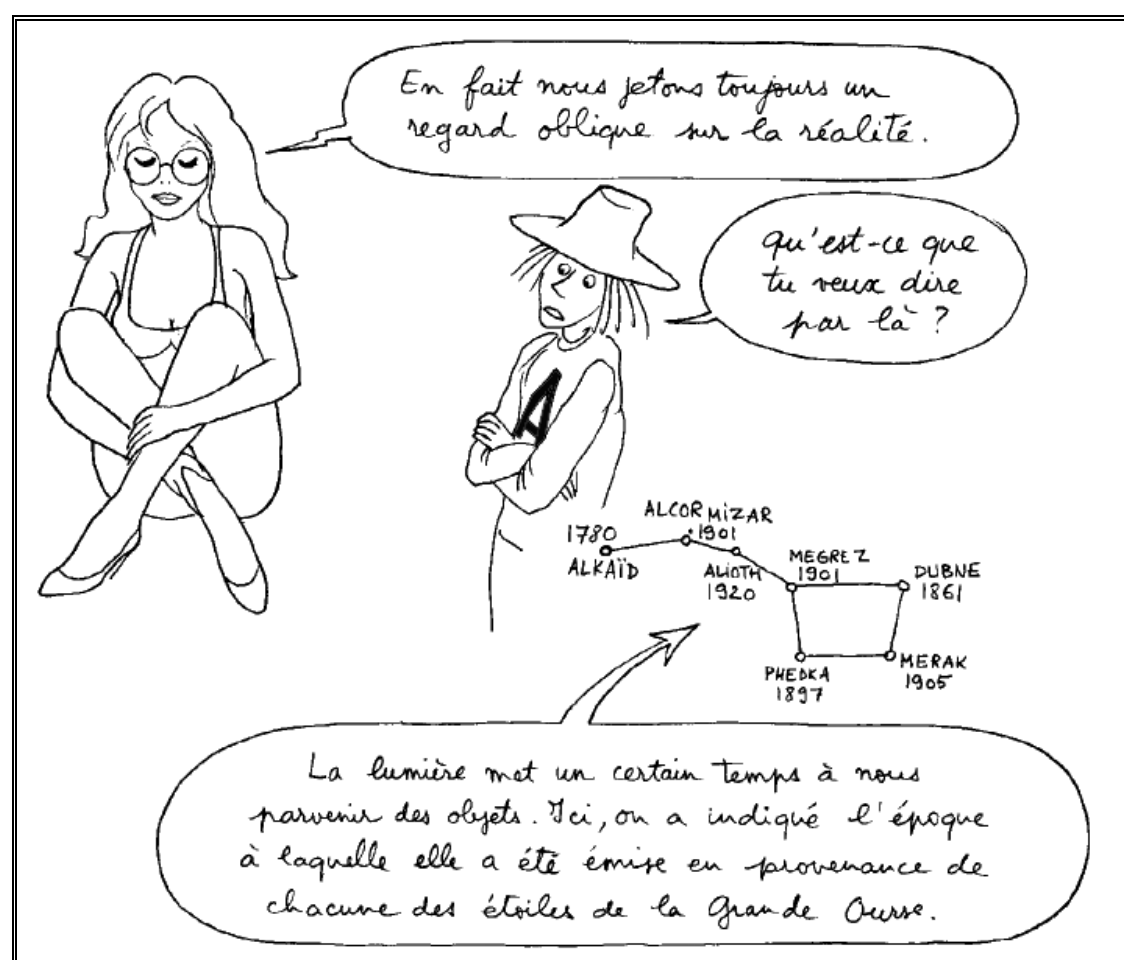 En fait nous jetons toujours un
regard oblique sur la réalité.
Qu'est-ce que
tu veux dire
par là ?
A
ALCOR MIZAR
1780
1901
ALKAÏD
ALIOTH
1920
MEGREZ
1901
DUBNE
1861
PHEDKA
1897
MERAK
1905
La lumière met un certain temps à nous
parvenir des objets. Ici, on a indiqué l'époque
à laquelle elle a été émise en provenance de
chacune des étoiles de la Grande Ourse.